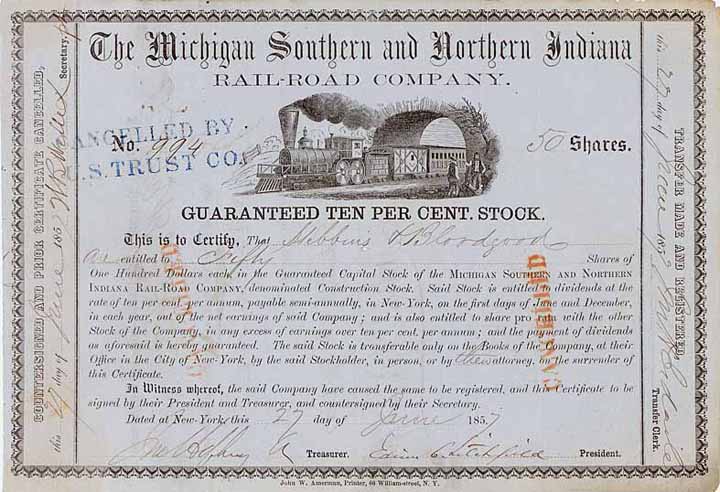 The Michigan Southern and Northern Indiana
RAIL-ROAD COMPANY.
No. 994
50 Shares.
CANCELLED BY
U.S. TRUST CO.
GUARANTEED TEN PER CENT. STOCK.
This is to Certify, That Stebbins & Bloodgood
are entitled to Fifty Shares of
One Hundred Dollars each in the Guaranteed Capital Stock of the MICHIGAN SOUTHERN AND NORTHERN
INDIANA RAIL-ROAD COMPANY, denominated Construction Stock. Said Stock is entitled to dividends at the
rate of ten per cent. per annum, payable semi-annually, in New-York, on the first days of June and December,
in each year, out of the net earnings of said Company; and is also entitled to share pro rata with the other
Stock of the Company, in any excess of earnings over ten per cent. per annum; and the payment of dividends
as aforesaid is hereby guaranteed. The said Stock is transferable only on the Books of the Company, at their
Office in the City of New-York, by the said Stockholder, in person, or by their attorney, on the surrender of
this Certificate.
In Witness whereof, the said Company have caused the same to be registered, and this Certificate to be
signed by their President and Treasurer, and countersigned by their Secretary.
Dated at New-York, this 27 day of June 1857
Treasurer. President.
John W. Amerman, Printer, 60 William-street, N. Y.
COUNTERSIGNED AND PRIOR CERTIFICATE CANCELLED,
this 27 day of June 1857 Secretary.
TRANSFER MADE AND REGISTERED,
this 27 day of June 1857 Transfer Clerk.